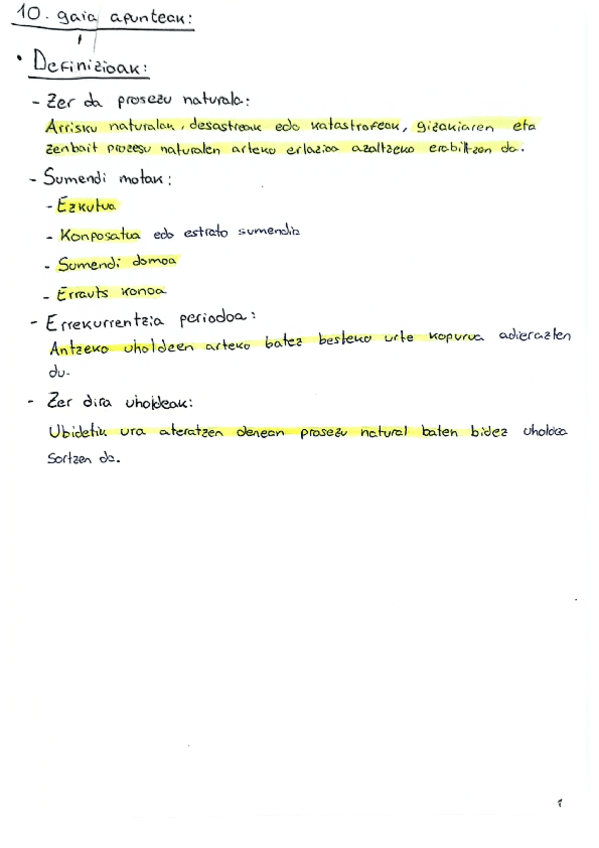 10. gaia apunteak:
• Definizioak:
- Zer da prosezu naturala:
Arrisku naturalak, desastreak edo katastrofeak, gizakiaren eta
zenbait prozesu naturalen arteko erlazioa azaltzeko erabiltzen da.
- Sumendi motak:
- Ezkutua
- Konposatua edo estrato sumendia
- Sumendi domoa
- Errauts konoa
- Errekurrentzia periodoa:
Antzeko uholdeen arteko batez besteko urte kopurua adierazten
du.
- Zer dira uholdeak:
Ubidetik ura ateratzen denean prosezu natural baten bidez uholdea
sortzen da.
1